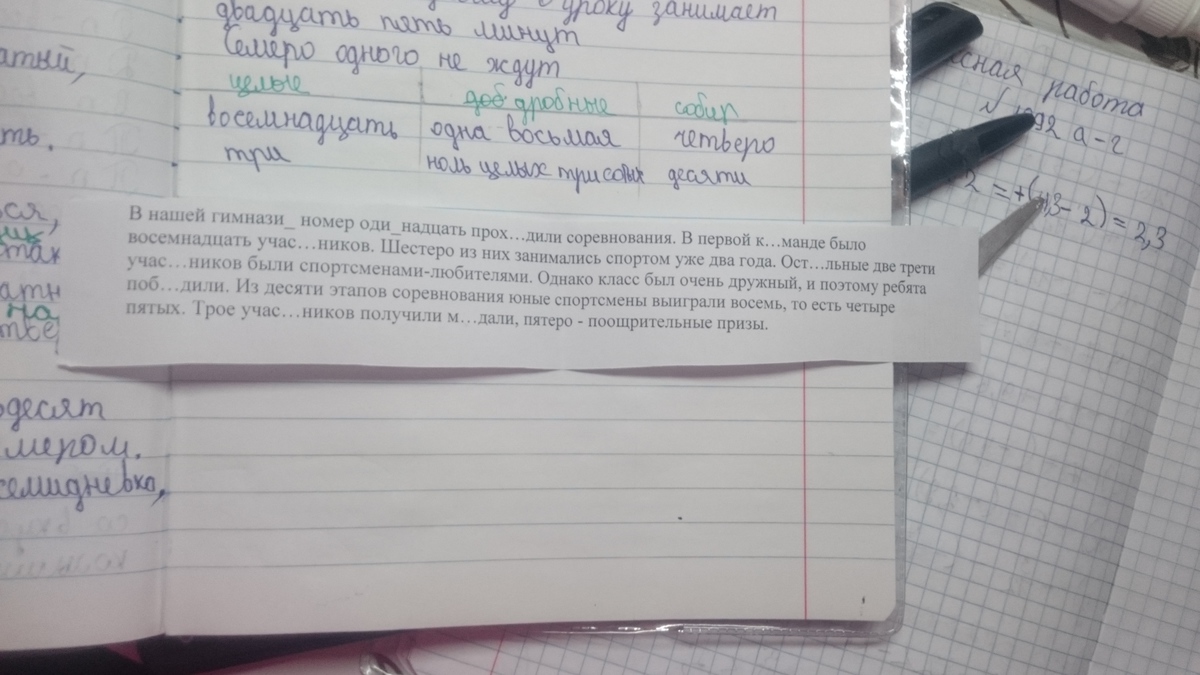 уроку занимает
двадцать пять минут
Семеро одного не ждут
целые дроб дробные собир
восемнадцать одна восьмая четверо
три ноль целых три сотых десяти
В нашей гимнази_ номер оди_надцать прох…дили соревнования. В первой к…манде было
восемнадцать учас…ников. Шестеро из них занимались спортом уже два года. Ост…льные две трети
учас…ников были спортсменами-любителями. Однако класс был очень дружный, и поэтому ребята
поб…дили. Из десяти этапов соревнования юные спортсмены выиграли восемь, то есть четыре
пятых. Трое учас…ников получили м…дали, пятеро - поощрительные призы.
десят
мером.
семидневка,
работа
а-г